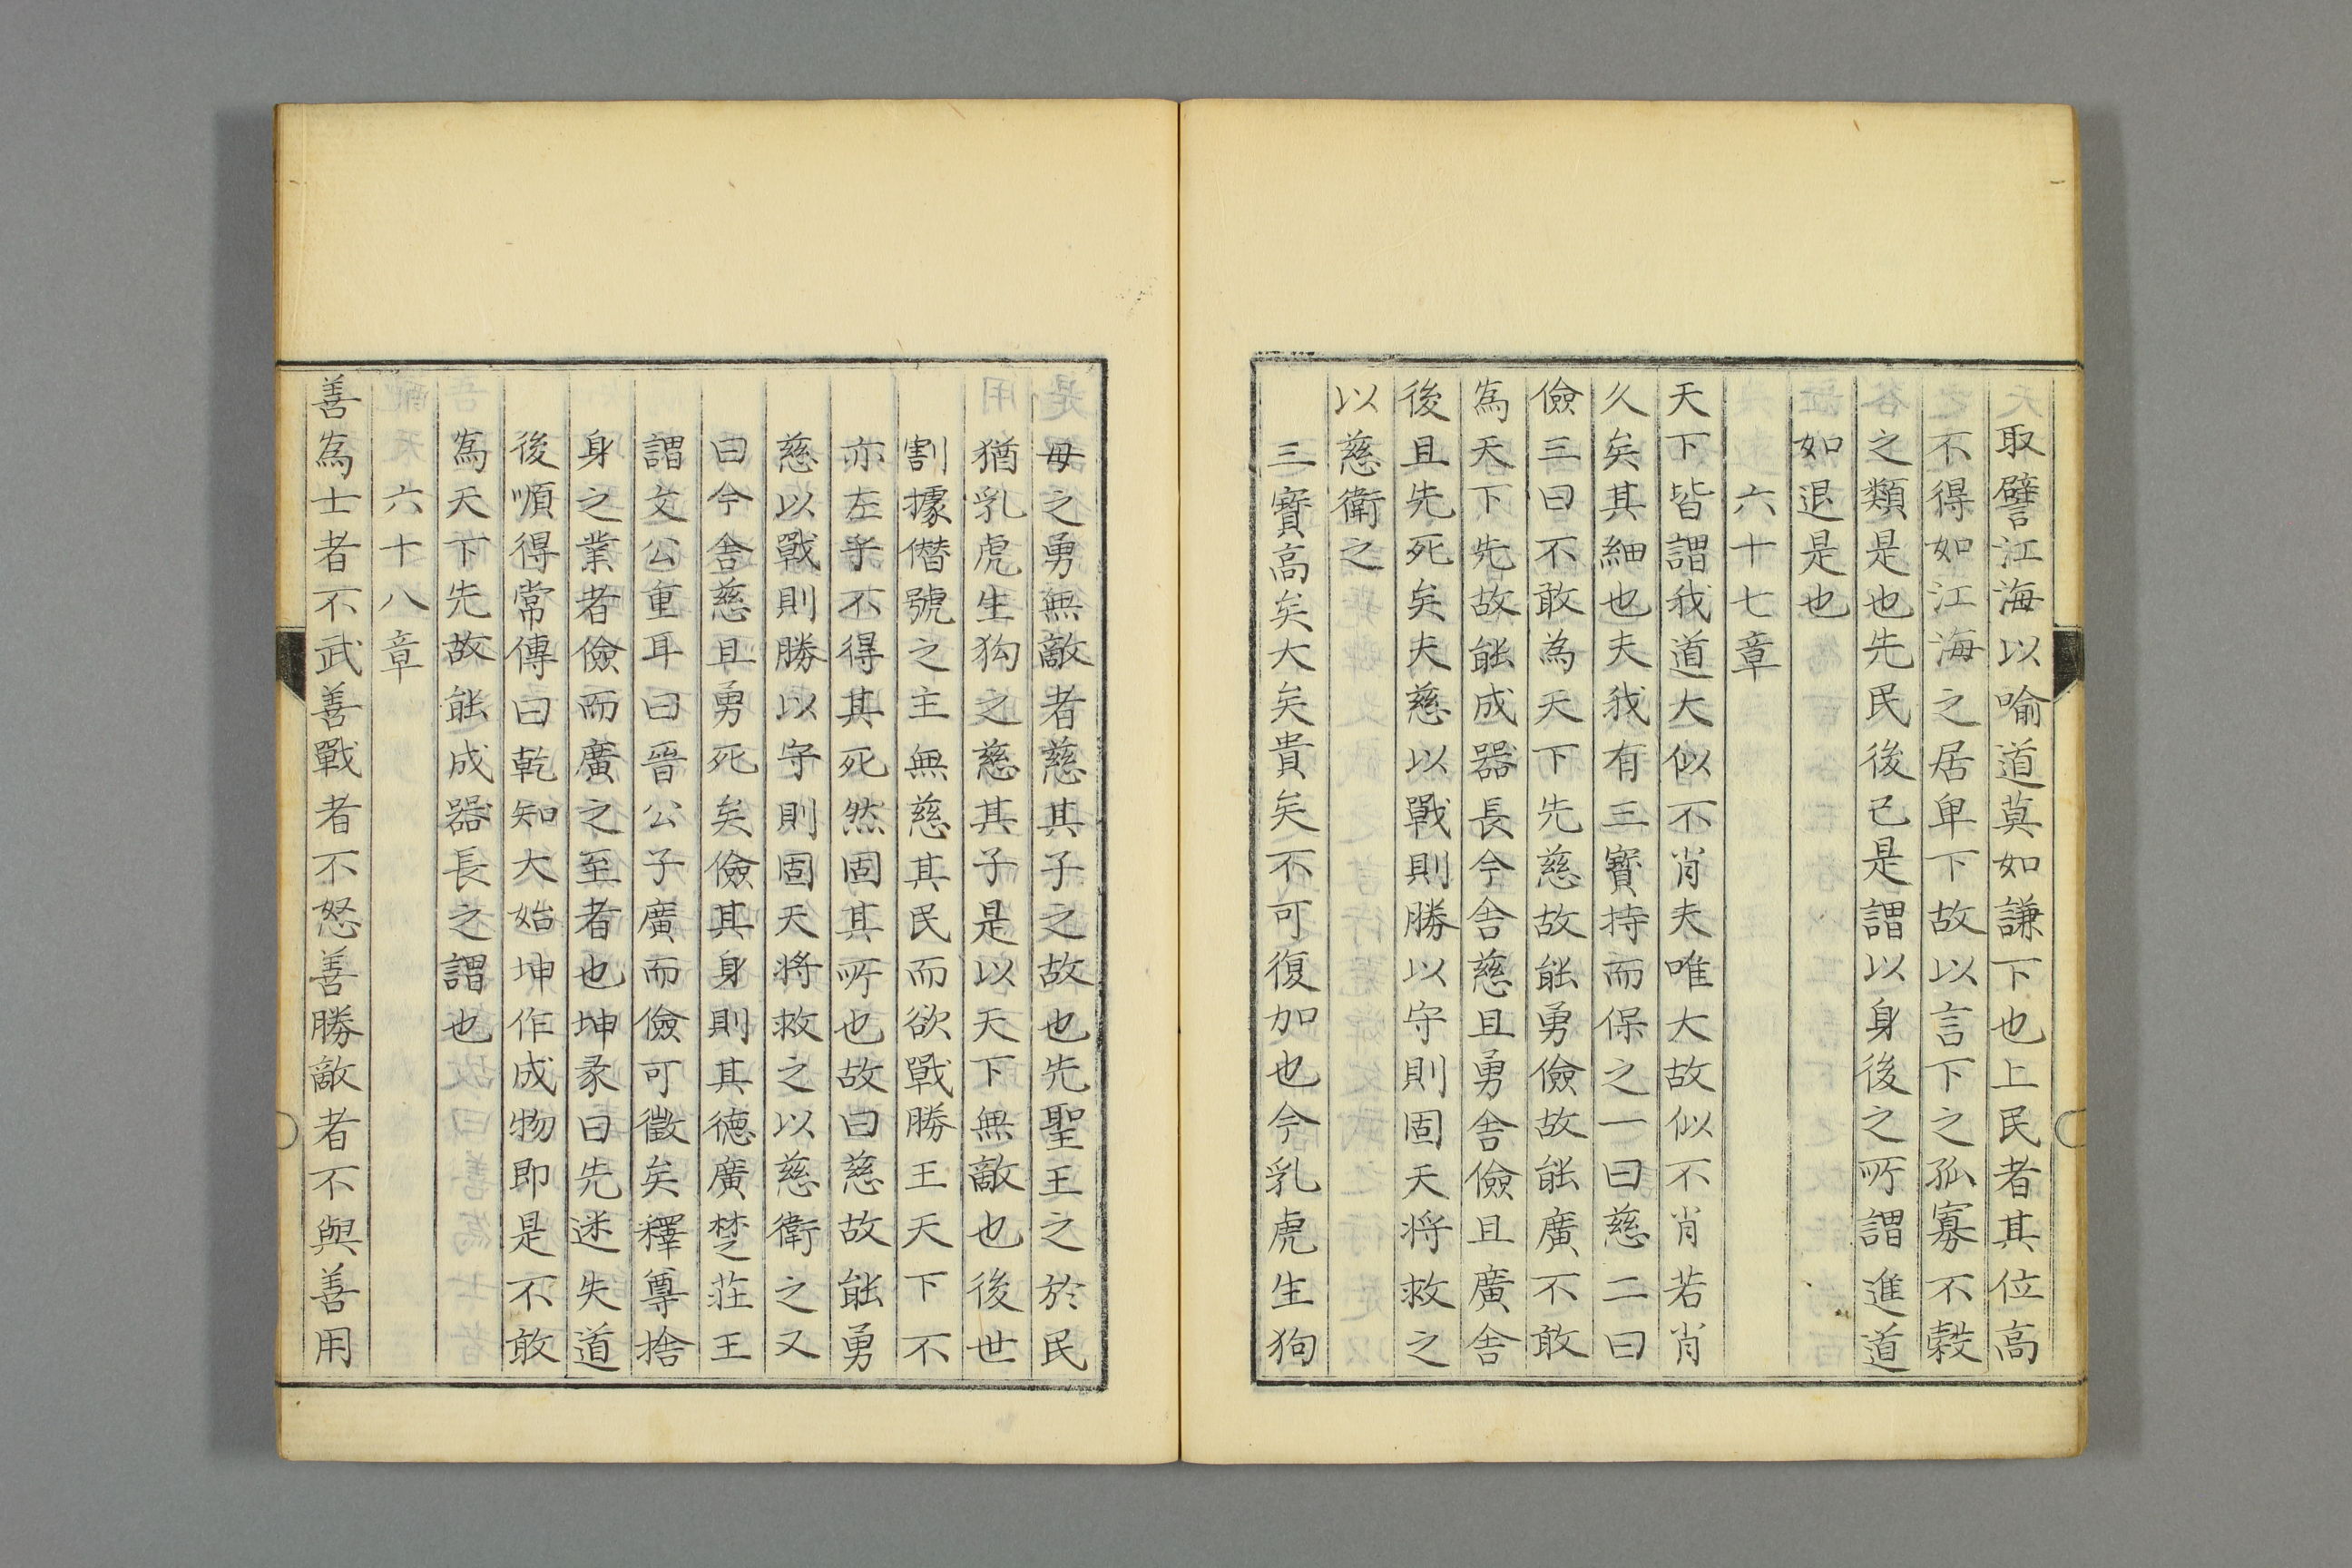 取譬江海以喻道莫如謙下也上民者其位高
不得如江海之居卑下故以言下之孤寡不穀
之類是也先民後己是謂以身後之所謂進道
如退是也
六十七章
天下皆謂我道大似不肖夫唯大故似不肖若肖
久矣其細也夫我有三寳持而保之一曰慈二曰
儉三曰不敢為天下先慈故能勇儉故能廣不敢
為天下先故能成器長今舍慈且勇舍儉且廣舍
後且先死矣夫慈以戰則勝以守則固天将救之
以慈衛之
三寳高矣大矣貴矣不可復加也今乳虎生狗
母之勇無敵者慈其子之故也先聖王之於民
猶乳虎生狗之慈其子是以天下無敵也後世
割據僭號之主無慈其民而欲戰勝王天下不
亦左乎不得其死然固其所也故曰慈故能勇
慈以戰則勝以守則固天将救之以慈衛之又
曰今舍慈且勇死矣儉其身則其德廣楚莊王
謂文公重耳曰晉公子廣而儉可徵矣釋尊捨
身之業者儉而廣之至者也坤彖曰先迷失道
後順得常傳曰乾知大始坤作成物即是不敢
為天下先故能成器長之謂也
六十八章
善為士者不武善戰者不怒善勝敵者不與善用